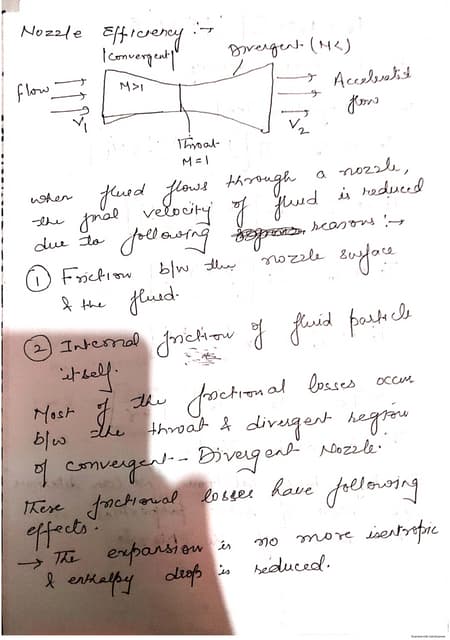 Nozzle Efficiency :→
|Convergent|
Divergent (M<)
flow
M>1
Accelerated
flow
V1
V2
Throat
M=1
when fluid flows through a nozzle,
the final velocity of fluid is reduced
due to following reasons :→
① Friction b/w the nozzle surface
& the fluid.
② Internal friction of fluid particle
itself.
Most of the frictional losses occur
b/w the throat & divergent region
of convergent - Divergent Nozzle.
These frictional losses have following
effects.
→ The expansion is no more isentropic
& enthalpy drop is reduced.